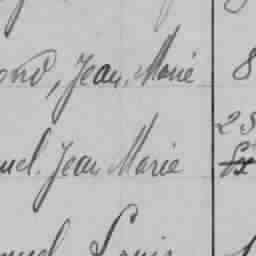 ond, Jean, Marie 8
uel Jean Marie 25
uel Louis